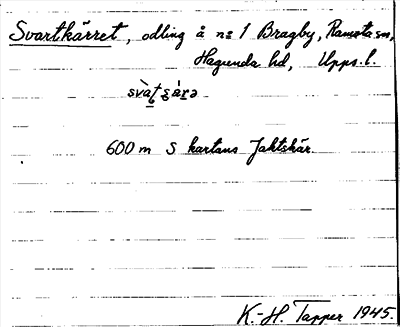 Svartkärret, odling å nr 1 Bragby, Ramsta sn,
Hagunda hd, Upps. l.
svàt̤ s̤àrə
600 m S kartans Jaktskär
K.-H. Tapper 1945.